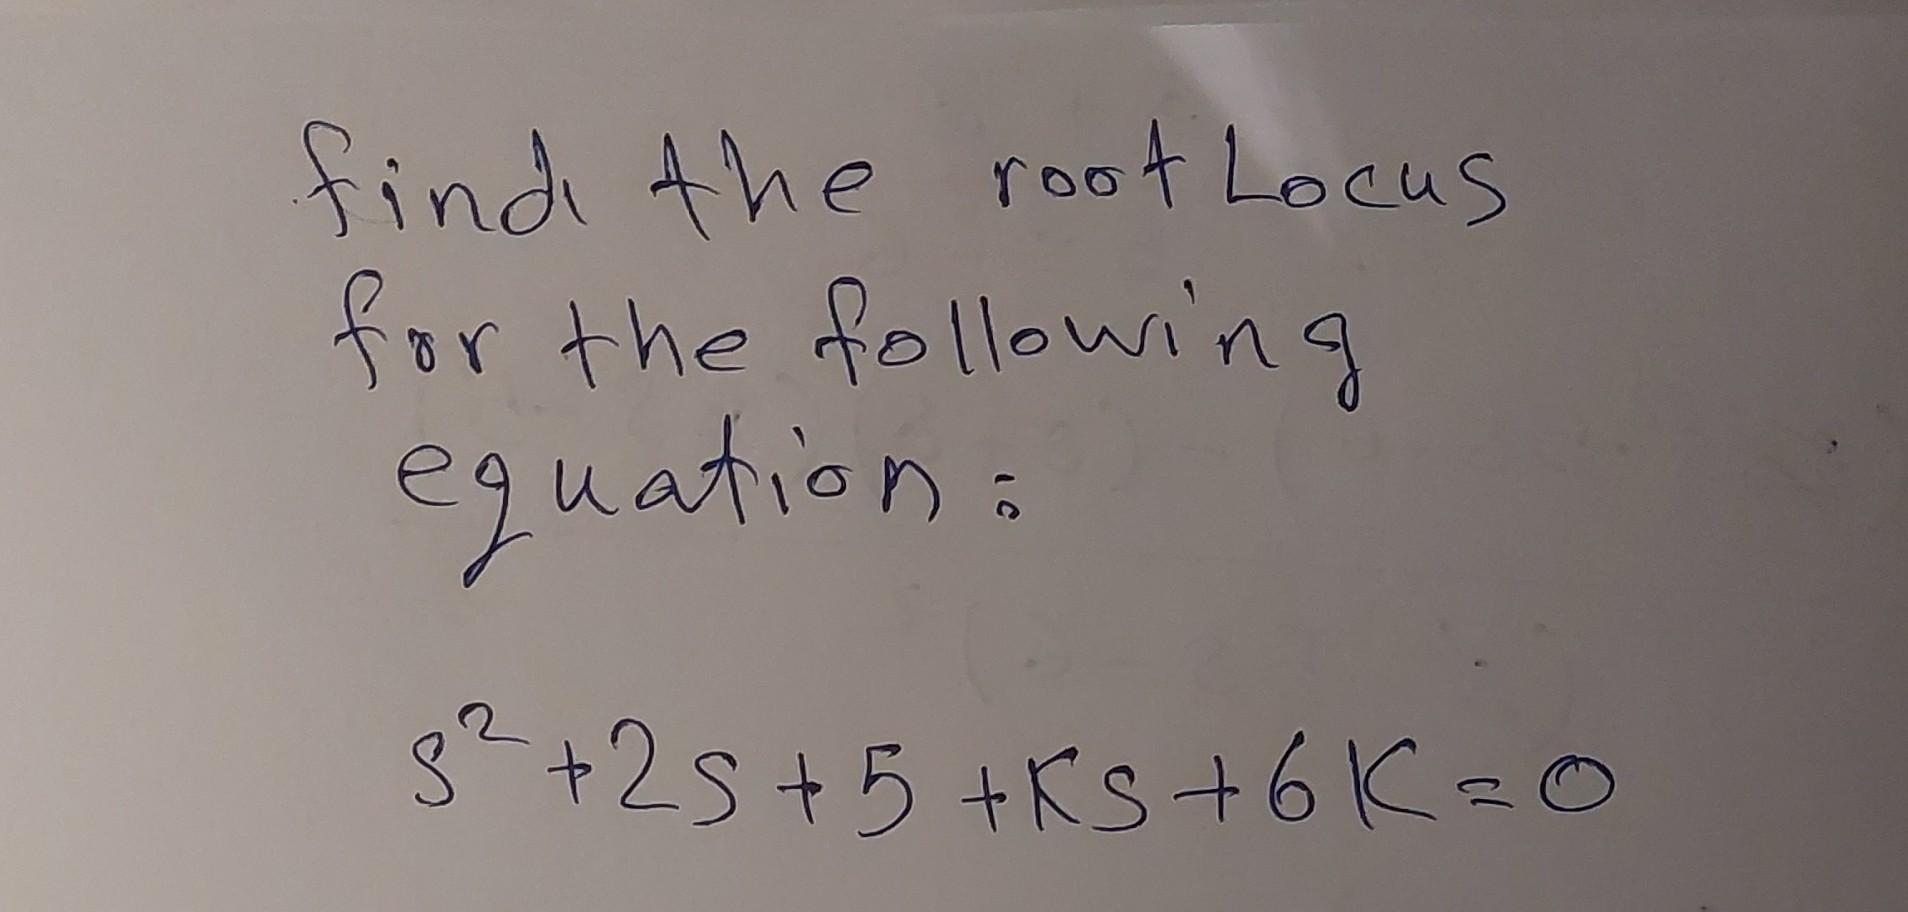 find the root Locus
for the following
equation:
s² + 2s + 5 + Ks + 6K = 0